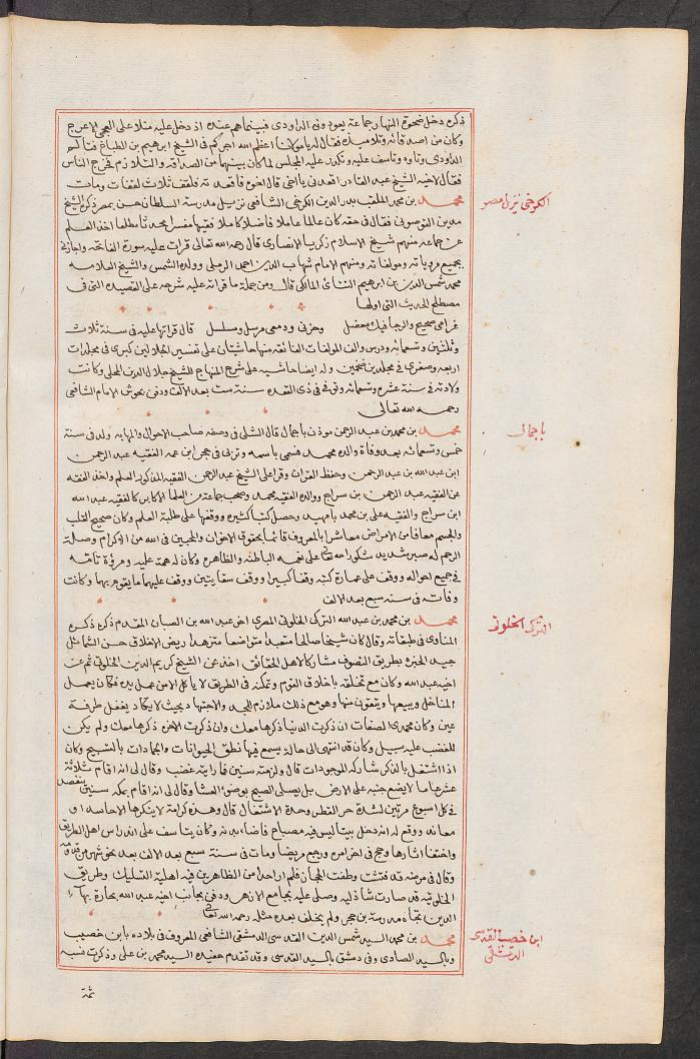 ذكره دخل ضحوة النهار جماعة يعودونه الداودي فبينما هم عنده اذ دخل عليه منلا على العجمي الاعرج
وكان من اصدقائه وتلاميذه فقال له يا مولانا اعظم الله اجركم في الشيخ ابرهيم بن الطباخ فتالم
الداودي وتاوه وتاسف عليه وتكدر عليه المجلس لما كان بينهما من الصداقة والتلازم فخرج الناس
فقال لاخيه الشيخ عبد القادر اقعدني يا اخي قال اخوه فاقعدته فلفقف ثلاث لفقات ومات
محمد بن محمد الملقب بدر الدين الكرخي الشافعي نزيل مدرسة السلطان حسن بمصر ذكره الشيخ
مدين القوصوني فقال في حقه كان عالما عاملا فاضلا كاملا فقيها مفسرا محدثا مطلعا اخذ العلم
عن جماعة منهم شيخ الاسلام زكريا الانصاري قال رحمه الله تعالى قرات عليه سورة الفاتحة واجازني
بجميع مروياته ومولفاته ومنهم الامام شهاب الدين احمد الرملي وولده الشمس والشيخ العلامه
محمد شمس الدين بن ابرهيم التتائي المالكي قال ومن جملة ما قراته عليه شرحه على القصيده التي في
مصطلح الحديث التي اولها
غرامي صحيح والرجا فيك معضل وحزني ودمعي مرسل ومسلسل قال قراتها عليه في سنة ثلاث
وثلثين وتسعمائة ودرس والف المولفات الفائقة منها حاشيتان على تفسير الجلالين كبرى في مجلدات
اربعه وصغرى في مجلدين ضخمين وله ايضا حاشيه على شرح المنهاج للشيخ جلال الدين المحلى وكانت
ولادته في سنة عشره وتسعمائة وتوفى في ذى القعده سنة ست بعد الالف ودفن بحوش الامام الشافعى
رحمه الله تعالى
محمد بن محمد بن عبد الرحمن موذن باجمال قال الشلى في وصفه صاحب الاحوال والمهابه ولد في سنة
خمس وتسعمائة بعد وفاة والده محمد فسمى باسمه وتربى في حجر ابن عمه الفقيه عبد الرحمن
ابن عبد الله بن عبد الرحمن وحفظ القران وقرا على الشيخ عبد الرحمن الفقيه المذكور العلم واخذ الفقه
عن الفقيه عبد الرحمن بن سراج ووالده الفقيه محمد وصحب جماعة من العلما الاكابر كالفقيه عبد الله
ابن سراج والفقيه على بن محمد بامهيد وحصل كتبا كثيره ووقفها على طلبة العلم وكان صحيح القلب
والجسم معافا من الامراض معاشرا بالمعروف قائما بحقوق الاخوان والمحبين في الله من الاكرام وصلة
الرحم له صبر شديد شكورا لله تعالى على نعمه الباطنه والظاهره وكان له همة عليه ومروة تامة
في جميع احواله ووقف على عمارة كتبه وقفا كبيرا ووقف سقايتين ووقف عليهما ما يقوم بهما وكانت
وفاته في سنة سبع بعد الالف
محمد بن محمد بن عبد الله التركى الخلوتى المصري اخو عبد الله بن الصبان المقدم ذكره ذكره
المناوى في طبقاته وقال كان شيخا صالحا متعبدا متواضعا متزهدا ريض الاخلاق حسن الشمائل
جيد الخبره بطريق التصوف مشاركا لاهل الحقائق اخذ عن الشيخ كريم الدين الخلوتى ثم عن
اخيه عبد الله وكان مع تخلقه باخلاق القوم وتمكنه في الطريق لا ياكل الا من عمل يده فكان يعمل
المناخل ويبيعها ويتقوت منها وهو مع ذلك ملازم للجد والاجتهاد بحيث لا يكاد يغفل طرفة
عين وكان محمدى الصفات ان ذكرت الدنيا ذكرها معك وان ذكرت الاخره ذكرها معك ولم يكن
للغضب عليه سبيل وكان قد انتهى الى حالة يسمع فيها نطق الحيوانات والجمادات بالتسبيح وكان
اذا اشتغل بالذكر شاركه الموجودات قال ولزمته سنين فما رايته غضب وقال لى انه اقام ثلاثة
عشر عاما لا يضع جنبه على الارض بل يصلى الصبح بوضوء العشا وقال لى انه اقام بمكه سنين ينفصد
في كل اسبوع مرتين لشدة حر القطر وحدة الاشتغال قال وهذه كرامة لا ينكرها الا حاسد او
معاند ووقع له انه دخل بيتا ليس فيه مصباح فاضاء بدنه وكان يتاسف على اندراس اهل الطريق
واختفا اثارها وحج في اخر امره ورجع مريضا ومات في سنة سبع بعد الالف بعد نحو شهر من قدومه
وقال في مرضه قد فتشت وطفت الحجاز فلم ار احدا من الظاهرين فيه اهلية التسليك وطريق
الخلوتيه قد صارت شاذليه وصلى عليه بجامع الازهر ودفن بجانب اخيه عبد الله بحارة بهاء
الدين تجاه مدرسة بن حجر ولم يخلف بعده مثله رحمه الله تعالى
محمد بن محمد السيد شمس الدين القدسى الدمشقى الشافعى المعروف في بلاده بابن خصيب
وبالسيد الصادى وفي دمشق بالسيد القدسى وقد تقدم حفيده السيد محمد بن على وذكرت نسبه
الكرخى نزيل مصر
باجمال
التركى الخلوتى
ابن خصيب القدسى
الدمشقى
ثمة